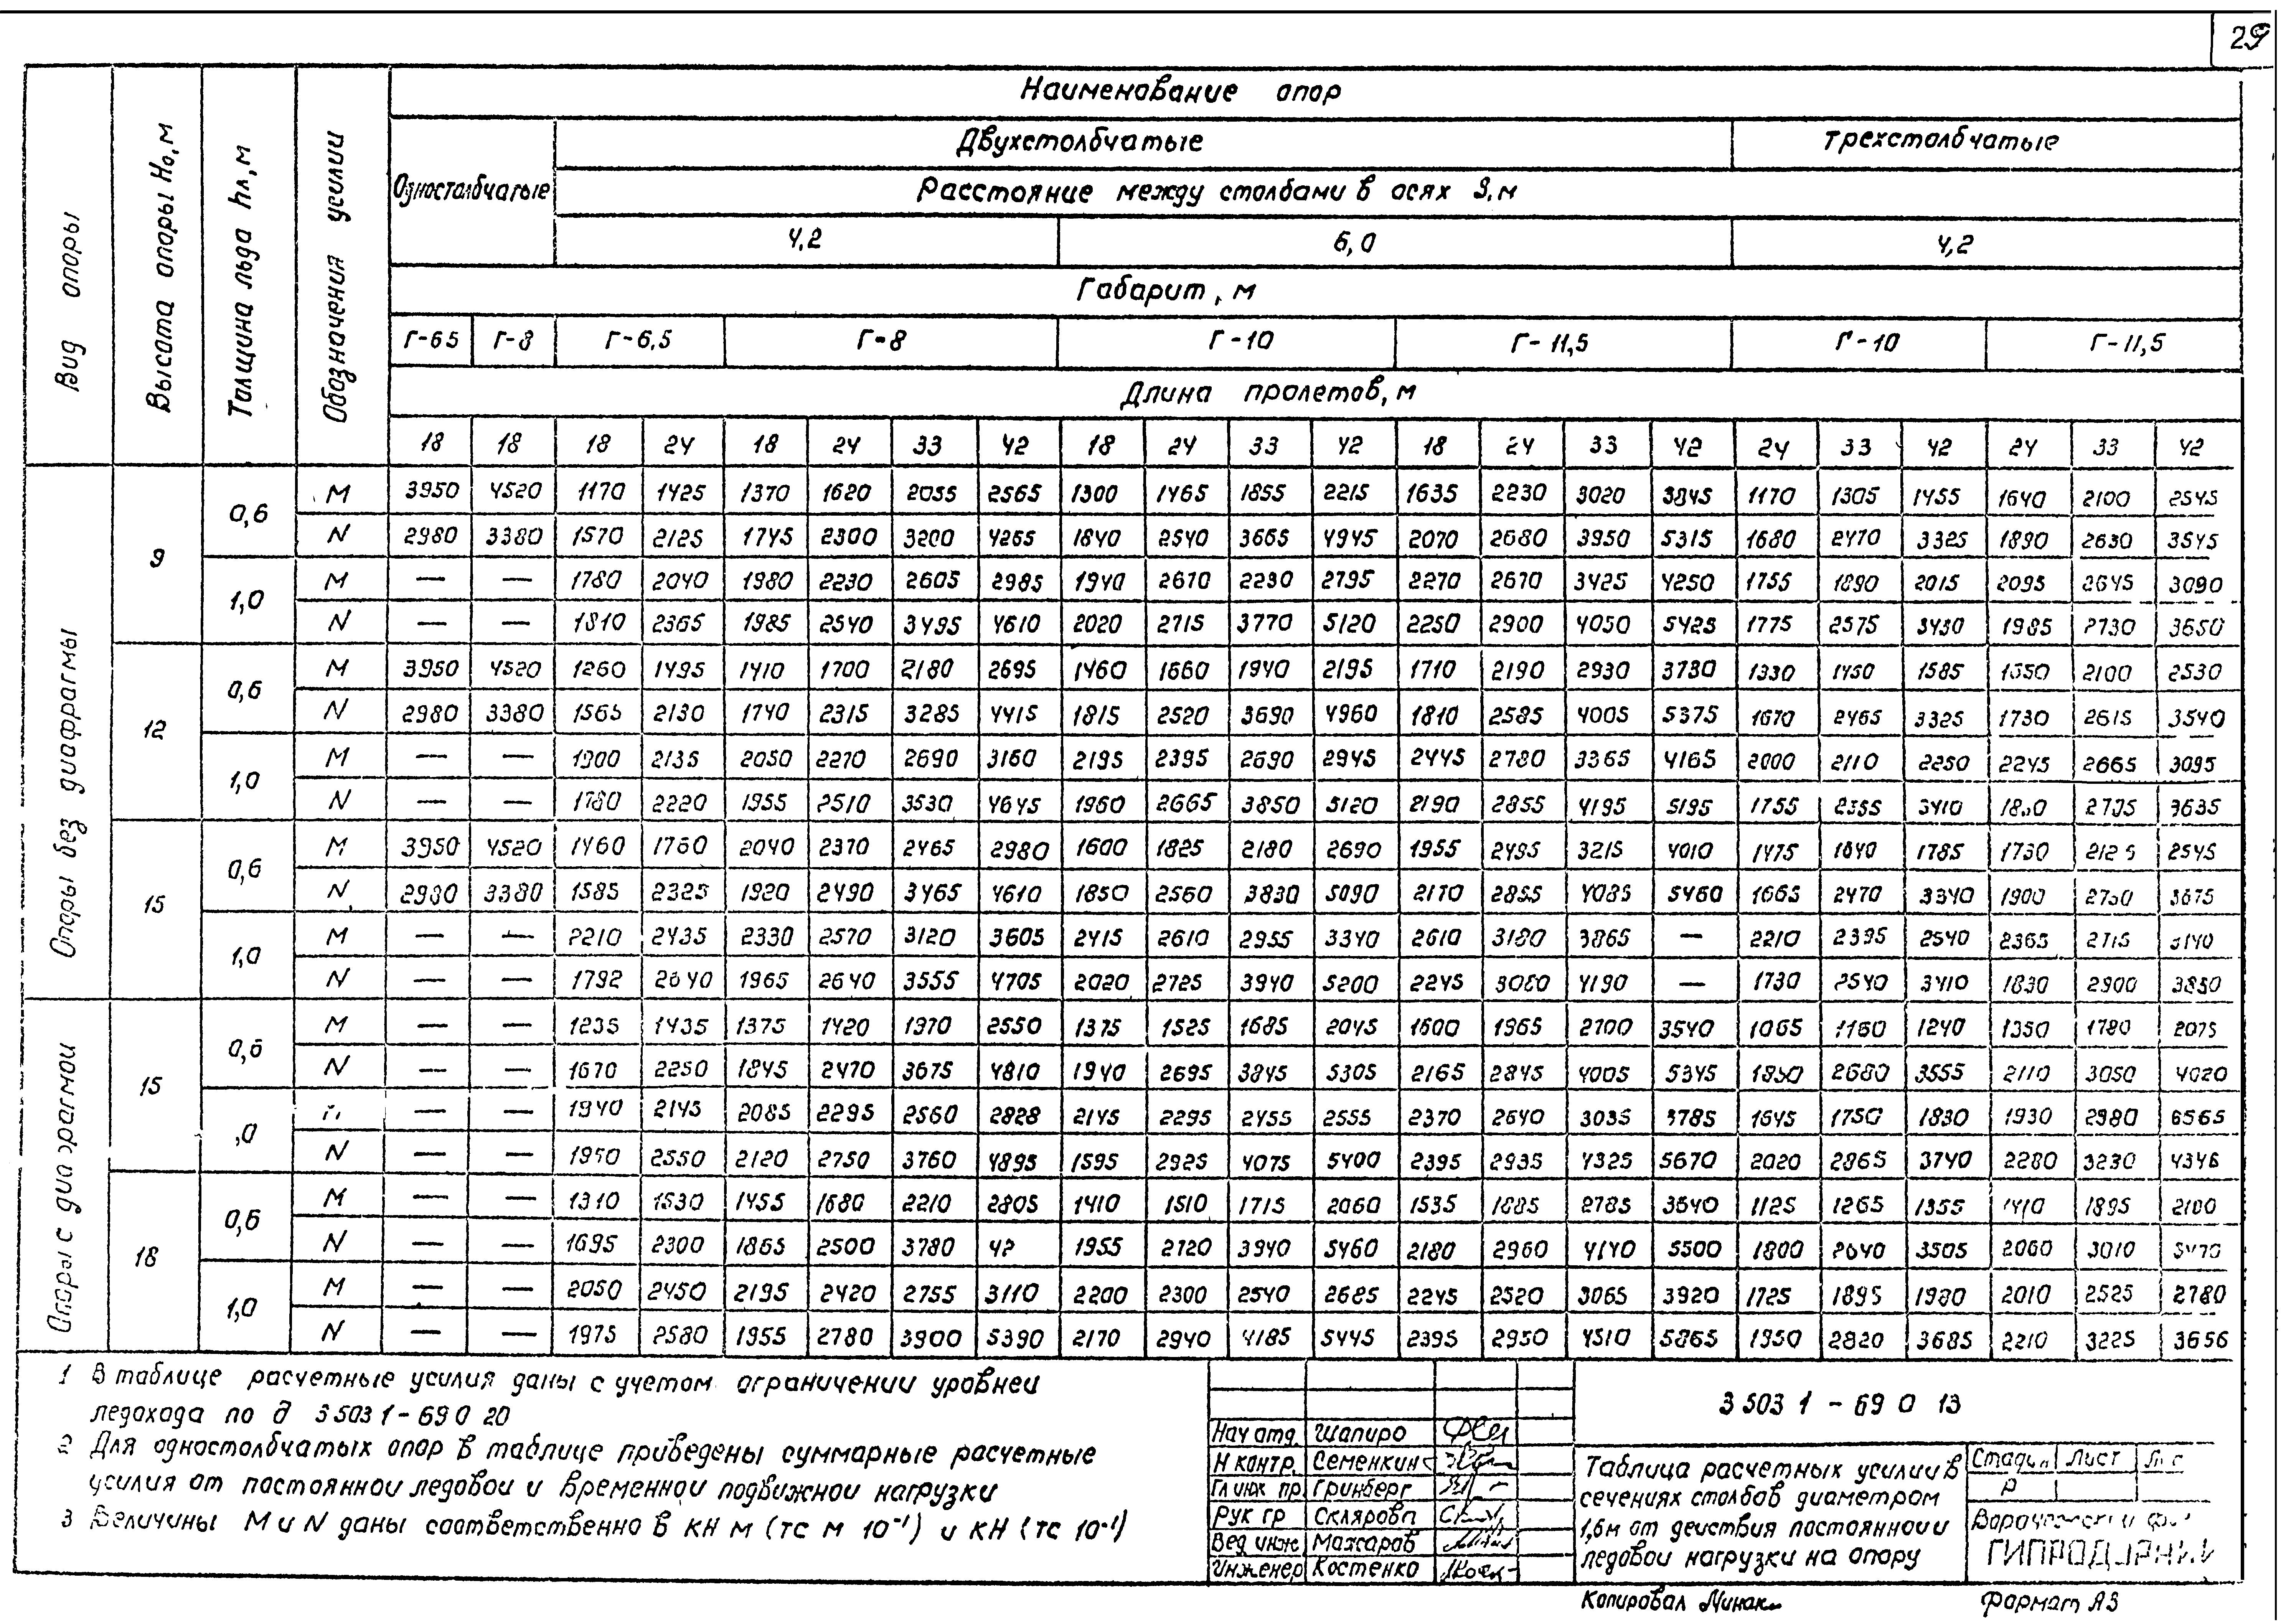 29
Наименование опор
Двухстолбчатые трехстолбчатые
Одностолбчатые
Расстояние между столбами в осях S, м
4,2 6,0 4,2
Габарит, м
Г-65 Г-8 Г-6,5 Г-8 Г-10 Г-11,5 Г-10 Г-11,5
Длина пролетов, м
Вид опоры
Высота опоры Hо, м
Толщина льда hл, м
Обозначения усилии
18 18 18 24 18 24 33 42 18 24 33 42 18 24 33 42 24 33 42 24 33 42
Опоры без диафрагмы
9 0,6 М 3950 4520 1170 1425 1370 1620 2035 2565 1300 1465 1855 2215 1635 2230 3020 3845 1170 1305 1455 1640 2100 2545
N 2980 3380 1570 2125 1745 2300 3200 4265 1840 2540 3665 4945 2070 2680 3950 5315 1680 2470 3325 1890 2630 3545
1,0 М — — 1780 2040 1980 2230 2605 2985 1940 2670 2230 2795 2270 2670 3425 4250 1755 1890 2015 2095 2645 3090
N — — 1810 2365 1985 2540 3495 4610 2020 2715 3770 5120 2250 2900 4050 5425 1775 2575 3450 1985 2730 3650
12 0,6 М 3950 4520 1260 1495 1410 1700 2180 2695 1460 1660 1940 2195 1710 2190 2930 3780 1330 1450 1585 2100 2530
N 2980 3380 1565 2130 1740 2315 3285 4415 1815 2520 3690 4960 1810 2585 4005 5375 1670 2465 3325 1730 2615 3540
1,0 М — — 1900 2135 2050 2270 2690 3160 2195 2395 2690 2945 2445 2780 3365 4165 2000 2110 2250 2245 2665 3095
N — — 1780 2220 1955 2510 3530 4645 1960 2665 3850 5120 2190 2855 4195 5195 1755 2355 3410 3635
15 0,6 М 3950 4520 1460 1760 2040 2370 2465 2980 1600 1825 2180 2690 1955 2495 3215 4010 1475 1640 1785 1730 2125 2545
N 2980 3380 1585 2325 1920 2490 3465 4610 1850 2560 3830 5090 2170 2855 4085 5460 1665 2470 3340 1900 2750 3675
1,0 М — — 2210 2435 2330 2570 3120 3605 2415 2610 2955 3340 2610 3180 3865 — 2210 2395 2540 2365 2715 3140
N — — 1792 2640 1965 2640 3555 4705 2020 2725 3940 5200 2245 3080 4190 — 1730 2540 3410 1830 2900 3850
Опоры с диафрагмой
15 0,6 М — — 1235 1435 1375 1420 1970 2550 1375 1525 1685 2045 1600 1965 2700 3540 1065 1160 1240 1350 1780 2075
N — — 1670 2250 1845 2470 3675 4810 1940 2695 3845 5305 2165 2845 4005 5345 1850 2680 3555 2110 3050 4020
,0 — — 1940 2145 2085 2295 2560 2828 2145 2295 2455 2555 2370 2640 3035 3785 1645 1750 1830 1930 2980 6565
N — — 1950 2550 2120 2750 3760 4895 1595 2925 4075 5400 2395 2935 4325 5670 2020 2865 3740 2280 3230 4346
18 0,6 М — — 1310 1530 1455 1680 2210 2805 1410 1510 1715 2060 1535 1885 2785 3640 1125 1265 1355 1410 1895 2100
N — — 1695 2300 1865 2500 3780 42 1955 2720 3940 5460 2180 2960 4140 5500 1800 2640 3505 2060 3010 3470
1,0 М — — 2050 2450 2195 2420 2755 3110 2200 2300 2540 2685 2245 2520 3065 3920 1725 1895 1980 2010 2525 2780
N — — 1975 2580 1955 2780 3900 5390 2170 2940 4185 5445 2395 2950 4510 5865 1950 2820 3685 2210 3225 3656
1 В таблице расчетные усилия даны с учетом ограничении уровнеи
ледохода по д 3 503 1-69 0 20
2 Для одностолбчатых опор в таблице приведены суммарные расчетные
усилия от постояннои ледовои и временнои подвижнои нагрузки
3 Величины М и N даны соответственно в кН м (тс м 10⁻¹) и кН (тс 10⁻¹)
3 503 1 - 69 0 13
Нач отд. Шапиро
Н контр. Семенкин
Гл инж пр Гринберг
Рук гр Склярова
Вед инж Мажаров
Инженер Костенко
Таблица расчетных усилии в
сечениях столбов диаметром
1,6м от деиствия постояннои
ледовои нагрузки на опору
Стадия Лист
Р
ГИПРОДОРНИИ
Копировал
Формат А3